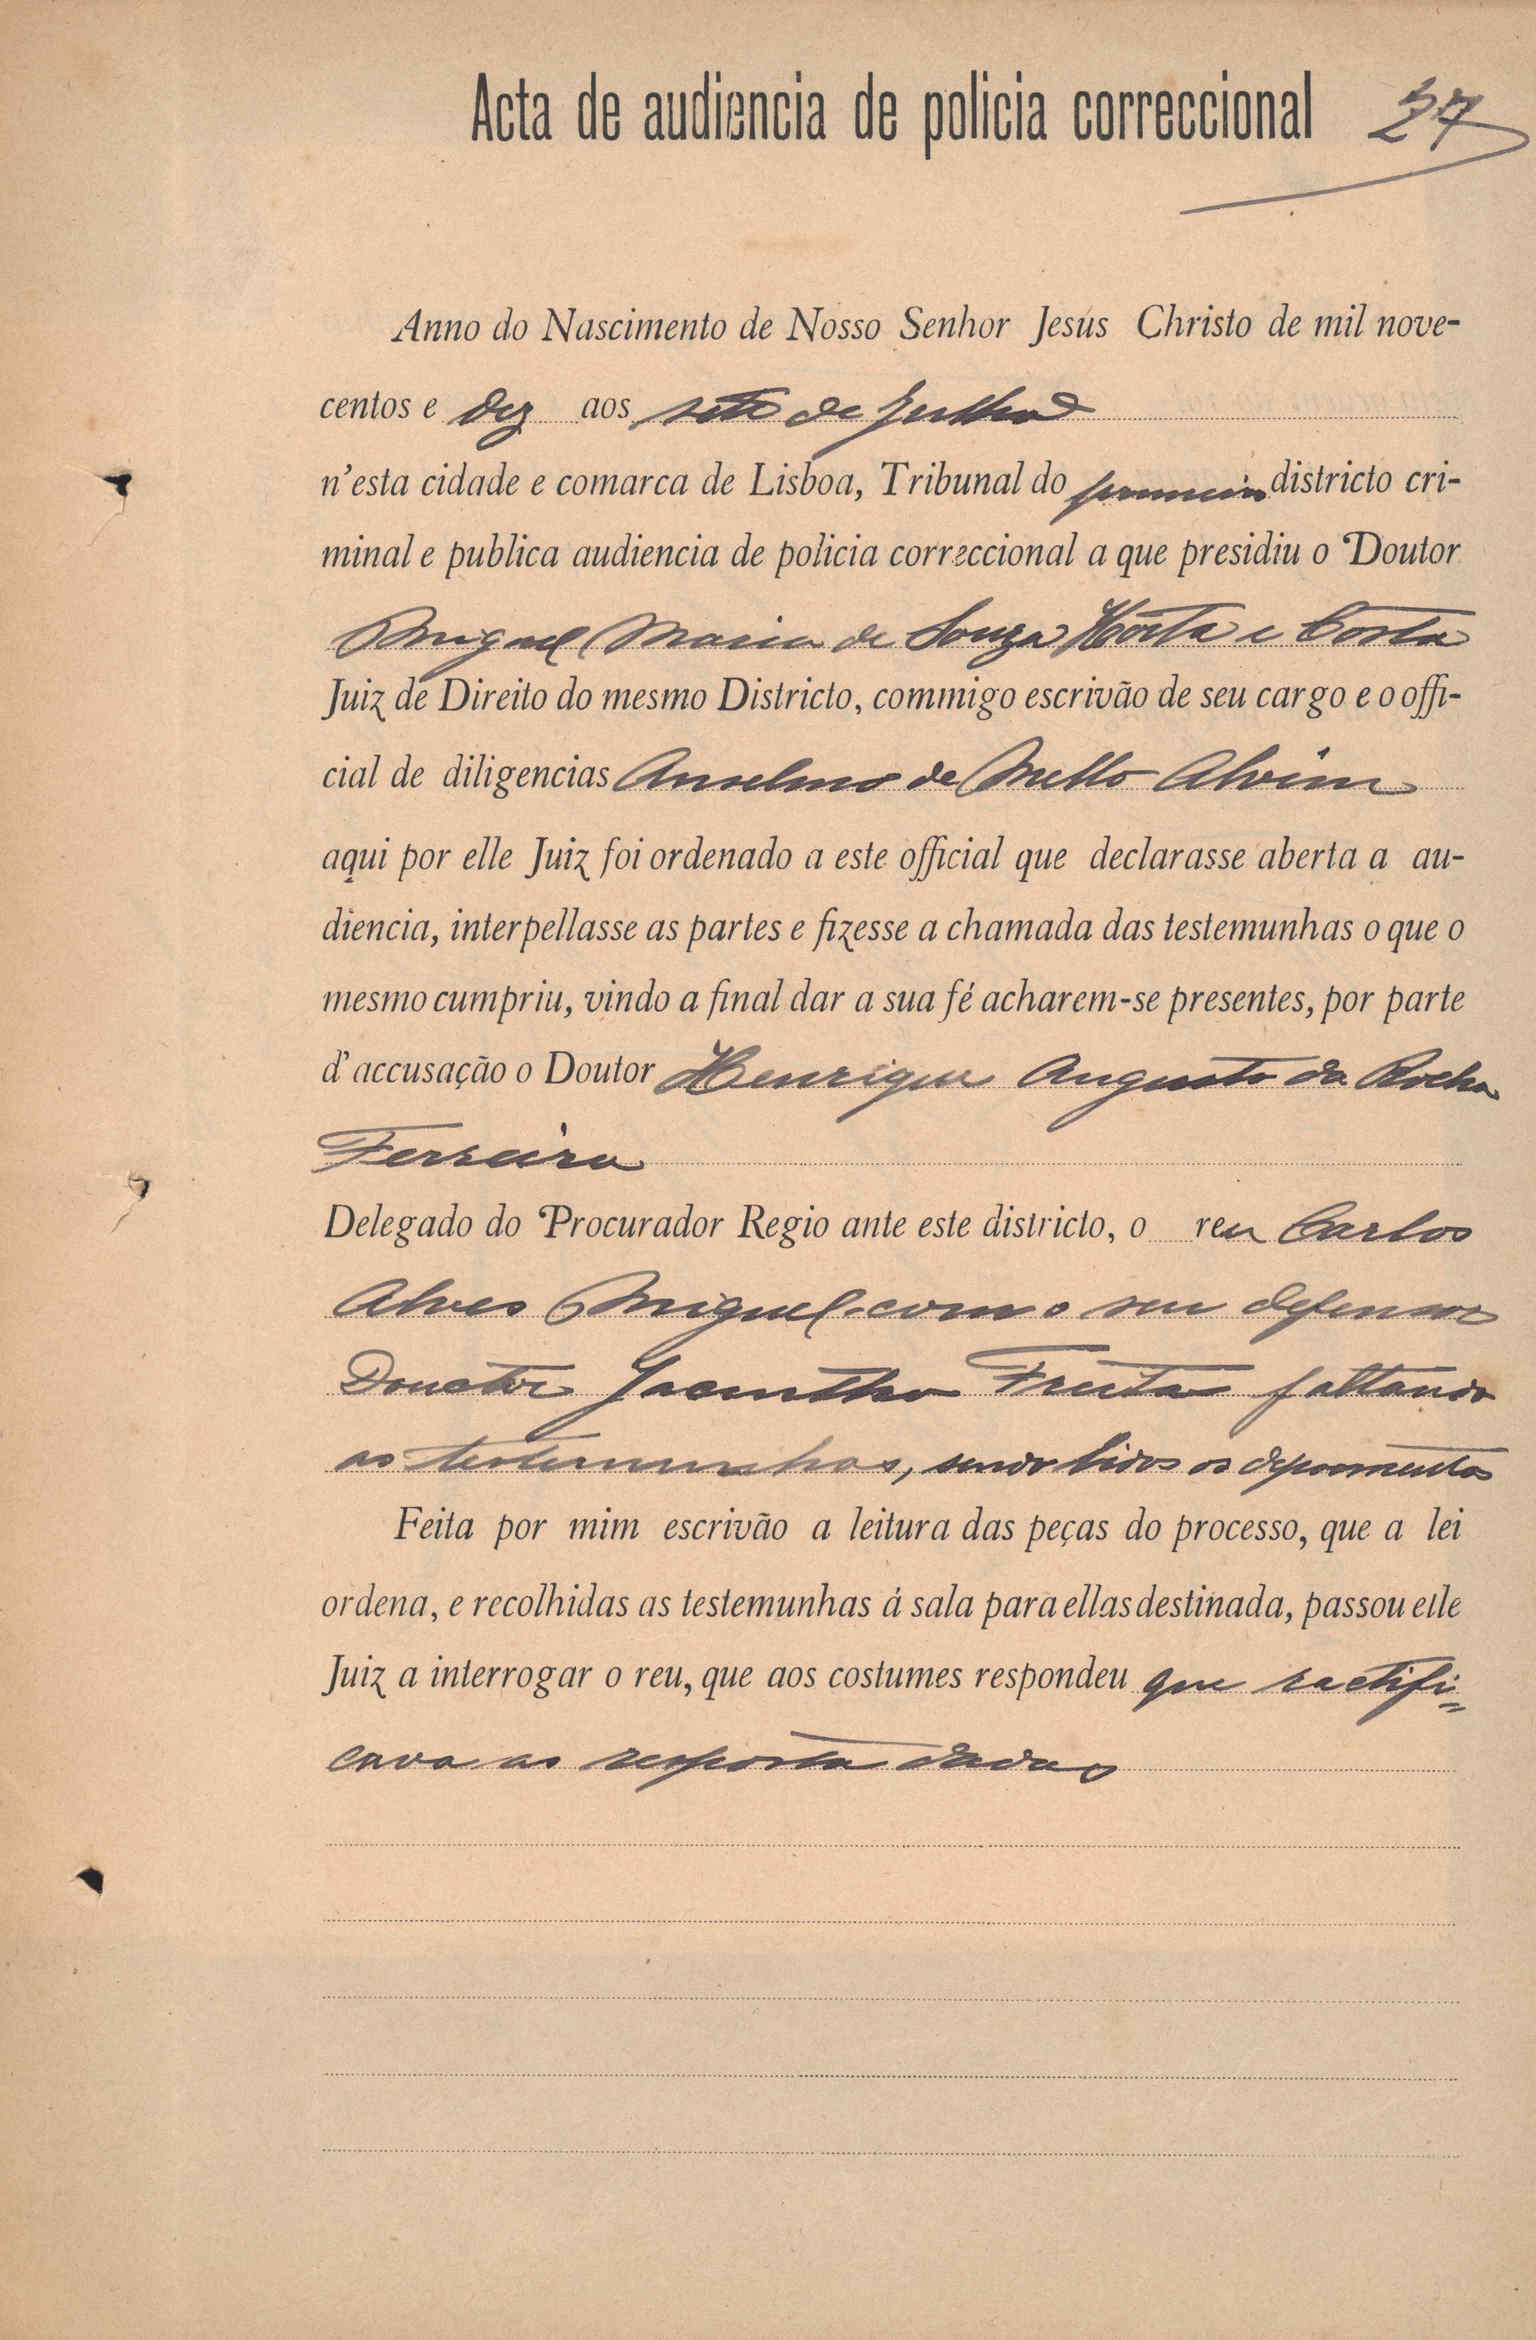 Acta de audiencia de policia correccional 37
Anno do Nascimento de Nosso Senhor Jesús Christo de mil nove-
centos e dez aos sete de Julho
n'esta cidade e comarca de Lisboa, Tribunal do primeiro districto cri-
minal e publica audiencia de policia correccional a que presidiu o Doutor
Miguel Maria de Souza Horta e Costa
Juiz de Direito do mesmo Districto, commigo escrivão de seu cargo e o offi-
cial de diligencias Anselmo de Mello Alvim
aqui por elle Juiz foi ordenado a este official que declarasse aberta a au-
diencia, interpellasse as partes e fizesse a chamada das testemunhas o que o
mesmo cumpriu, vindo a final dar a sua fé acharem-se presentes, por parte
d'accusação o Doutor Henrique Augusto da Rocha
Ferreira
Delegado do Procurador Regio ante este districto, o reu Carlos
Alves Miguel com o seu defensor
Douctor Jacintho Freitas faltando
as testemunhas, sendo lidos os depoimentos
Feita por mim escrivão a leitura das peças do processo, que a lei
ordena, e recolhidas as testemunhas á sala para ellas destinada, passou elle
Juiz a interrogar o reu, que aos costumes respondeu que ractifi=
cava as resposta dadas